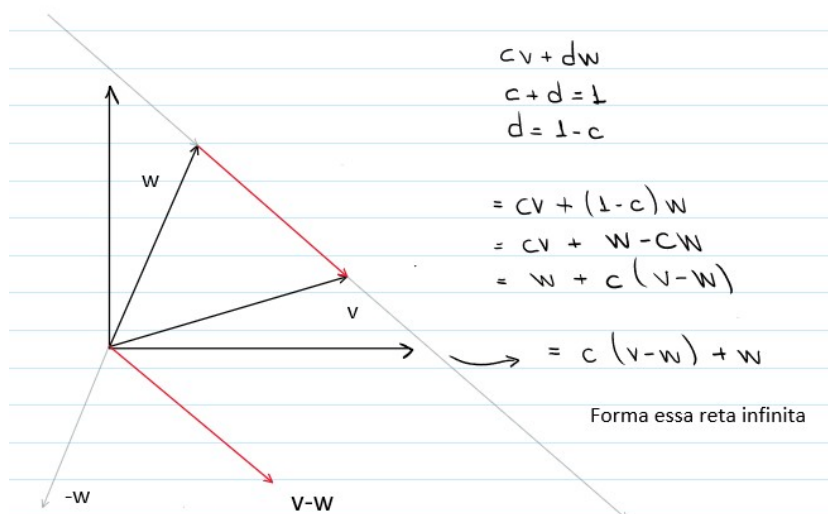 cv + dw
c + d = 1
d = 1 - c
w
= cv + (1 - c) w
= cv + w - cw
= w + c (v - w)
v
= c (v - w) + w
Forma essa reta infinita
-w
v-w